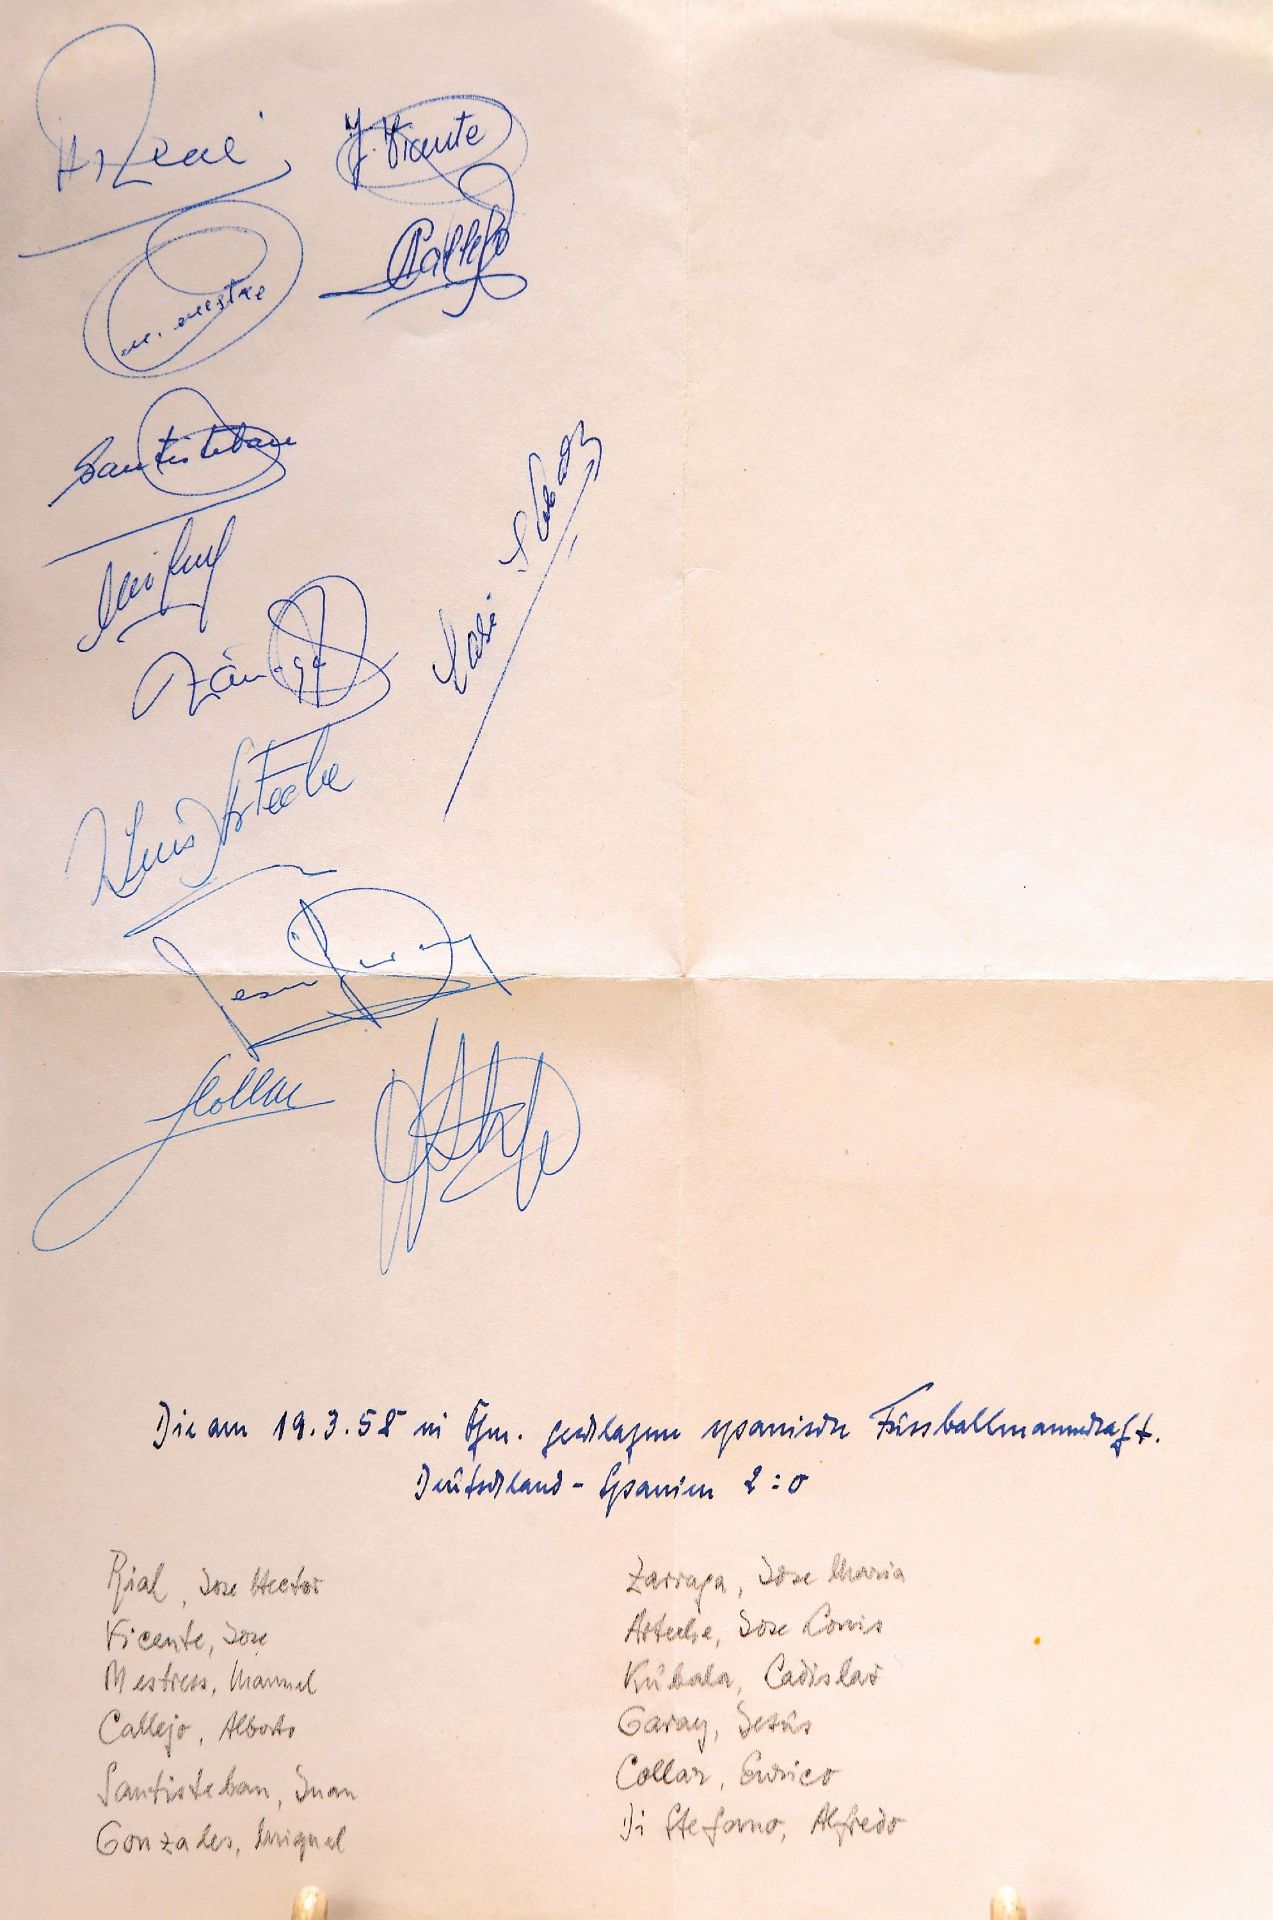 H. Rial
J. Vicente
M. Mestre
Callejo
Santisteban
Zárraga
Luis Arteche
Jesús Garay
Collar
Die am 19.3.58 in Ffm. geschlagene spanische Fussballmannschaft.
Deutschland - Spanien 2:0
Rial, Jose Hector
Vicente, Jose
Mestress, Manuel
Callejo, Alberto
Santisteban, Juan
Gonzales, Miguel
Zarraga, Jose Maria
Arteche, Jose Louis
Kubala, Ladislav
Garay, Jesús
Collar, Enrico
Di Stefano, Alfredo